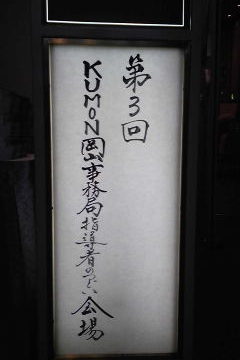 第3回
KUMON岡山事務局指導者のつどい会場